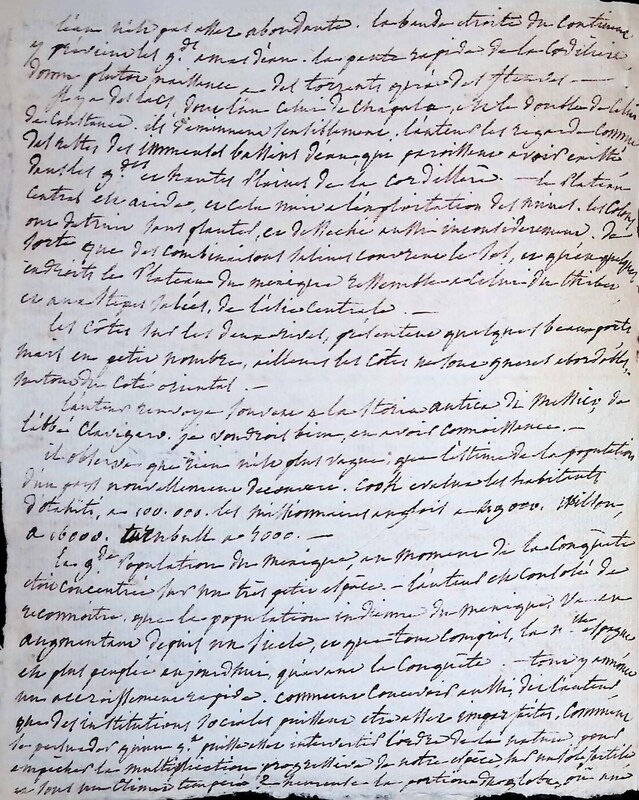 l'eau n'est pas assez abondante. la bande etroite du continent
y previent les g.ds amas d'eau. la pente rapide de la Cordiliere
donne plutot naissance a des torrents qu'a des fleuves —
Il y a des lacs, dont l'un celui de Chapala, est le double de celui
de Constance. ils diminuent sensiblement. l'auteur les regarde comme
des restes des immenses bassins d'eau qui paroissent avoir existé
dans les g.des et hautes plaines de la cordillere — le plateau
central est aride, et cela nuit a l'exploitation des mines. les colons
ont detruit sans planter, et desseché aussi inconsiderement. De
sorte que des combinaisons salines couvrent le sol, et qu'en quelques
endroits le plateau du mexique ressemble a celui du thibet
et aux steppes salées, de l'asie centrale. —
les côtes sur les deux rives, presentent quelques beaux ports
mais en petit nombre, ailleurs les côtes ne sont gueres abordables,
surtout du coté oriental. —
l'auteur renvoye souvent a la storia antica di Messico, de
l'abbé Clavigero. je voudrois bien, en avoir connaissance. —
il observe que rien n'est plus vague, que l'estime de la population
d'un pays nouvellement decouvert. Cook evalue les habitants
d'otahiti, a 100.000. les missionnaires anglois a 49000. Wilson,
a 16000. turnbull a 5000. —
La g.de population du mexique, au moment de la Conquête
etoit concentrée sur un très petit espace. — l'auteur est consolé de
reconnoitre que la population indienne du mexique va en
augmentant depuis un siecle, et que tout compris, la n.lle espagne
est plus peuplée aujourdhui, qu'avant la Conquête — tout y annonce
un accroissement rapide. comment concevoir aussi, dit l'auteur
que des institutions sociales puissent etre assez imparfaites, comment
se persuader qu'un g.t puisse assez intervertir l'ordre de la nature pour
empêcher la multiplication progressive de notre espece sur un sol fertile
et sous un climat temperé? heureuse la portion du globe, où une